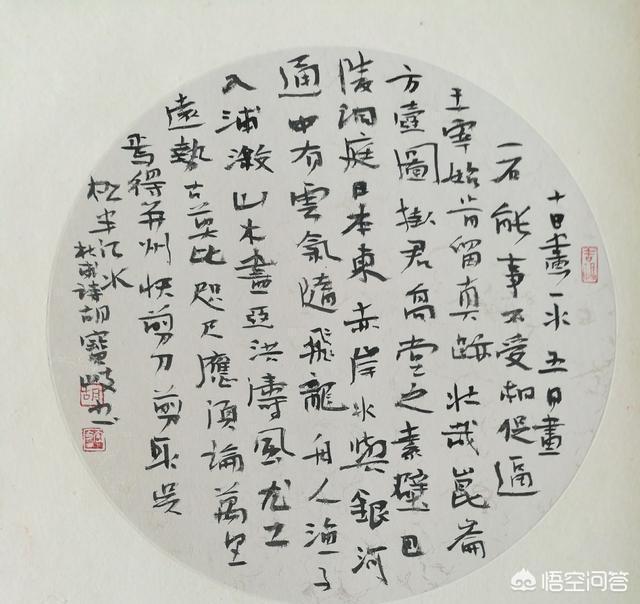 十日畫一水五日畫
一石能事不受相促逼
王宰始肯留真跡壯哉崑崙
方壺圖掛君高堂之素壁巴
陵洞庭日本東赤岸水與銀河
通中有雲氣隨飛龍舟人漁子
入浦漵山木盡亞洪濤風尤工
遠勢古莫比咫尺應須論萬里
焉得并州快剪刀剪取吳
松半江水
杜甫詩胡寶岐书
悟空问答